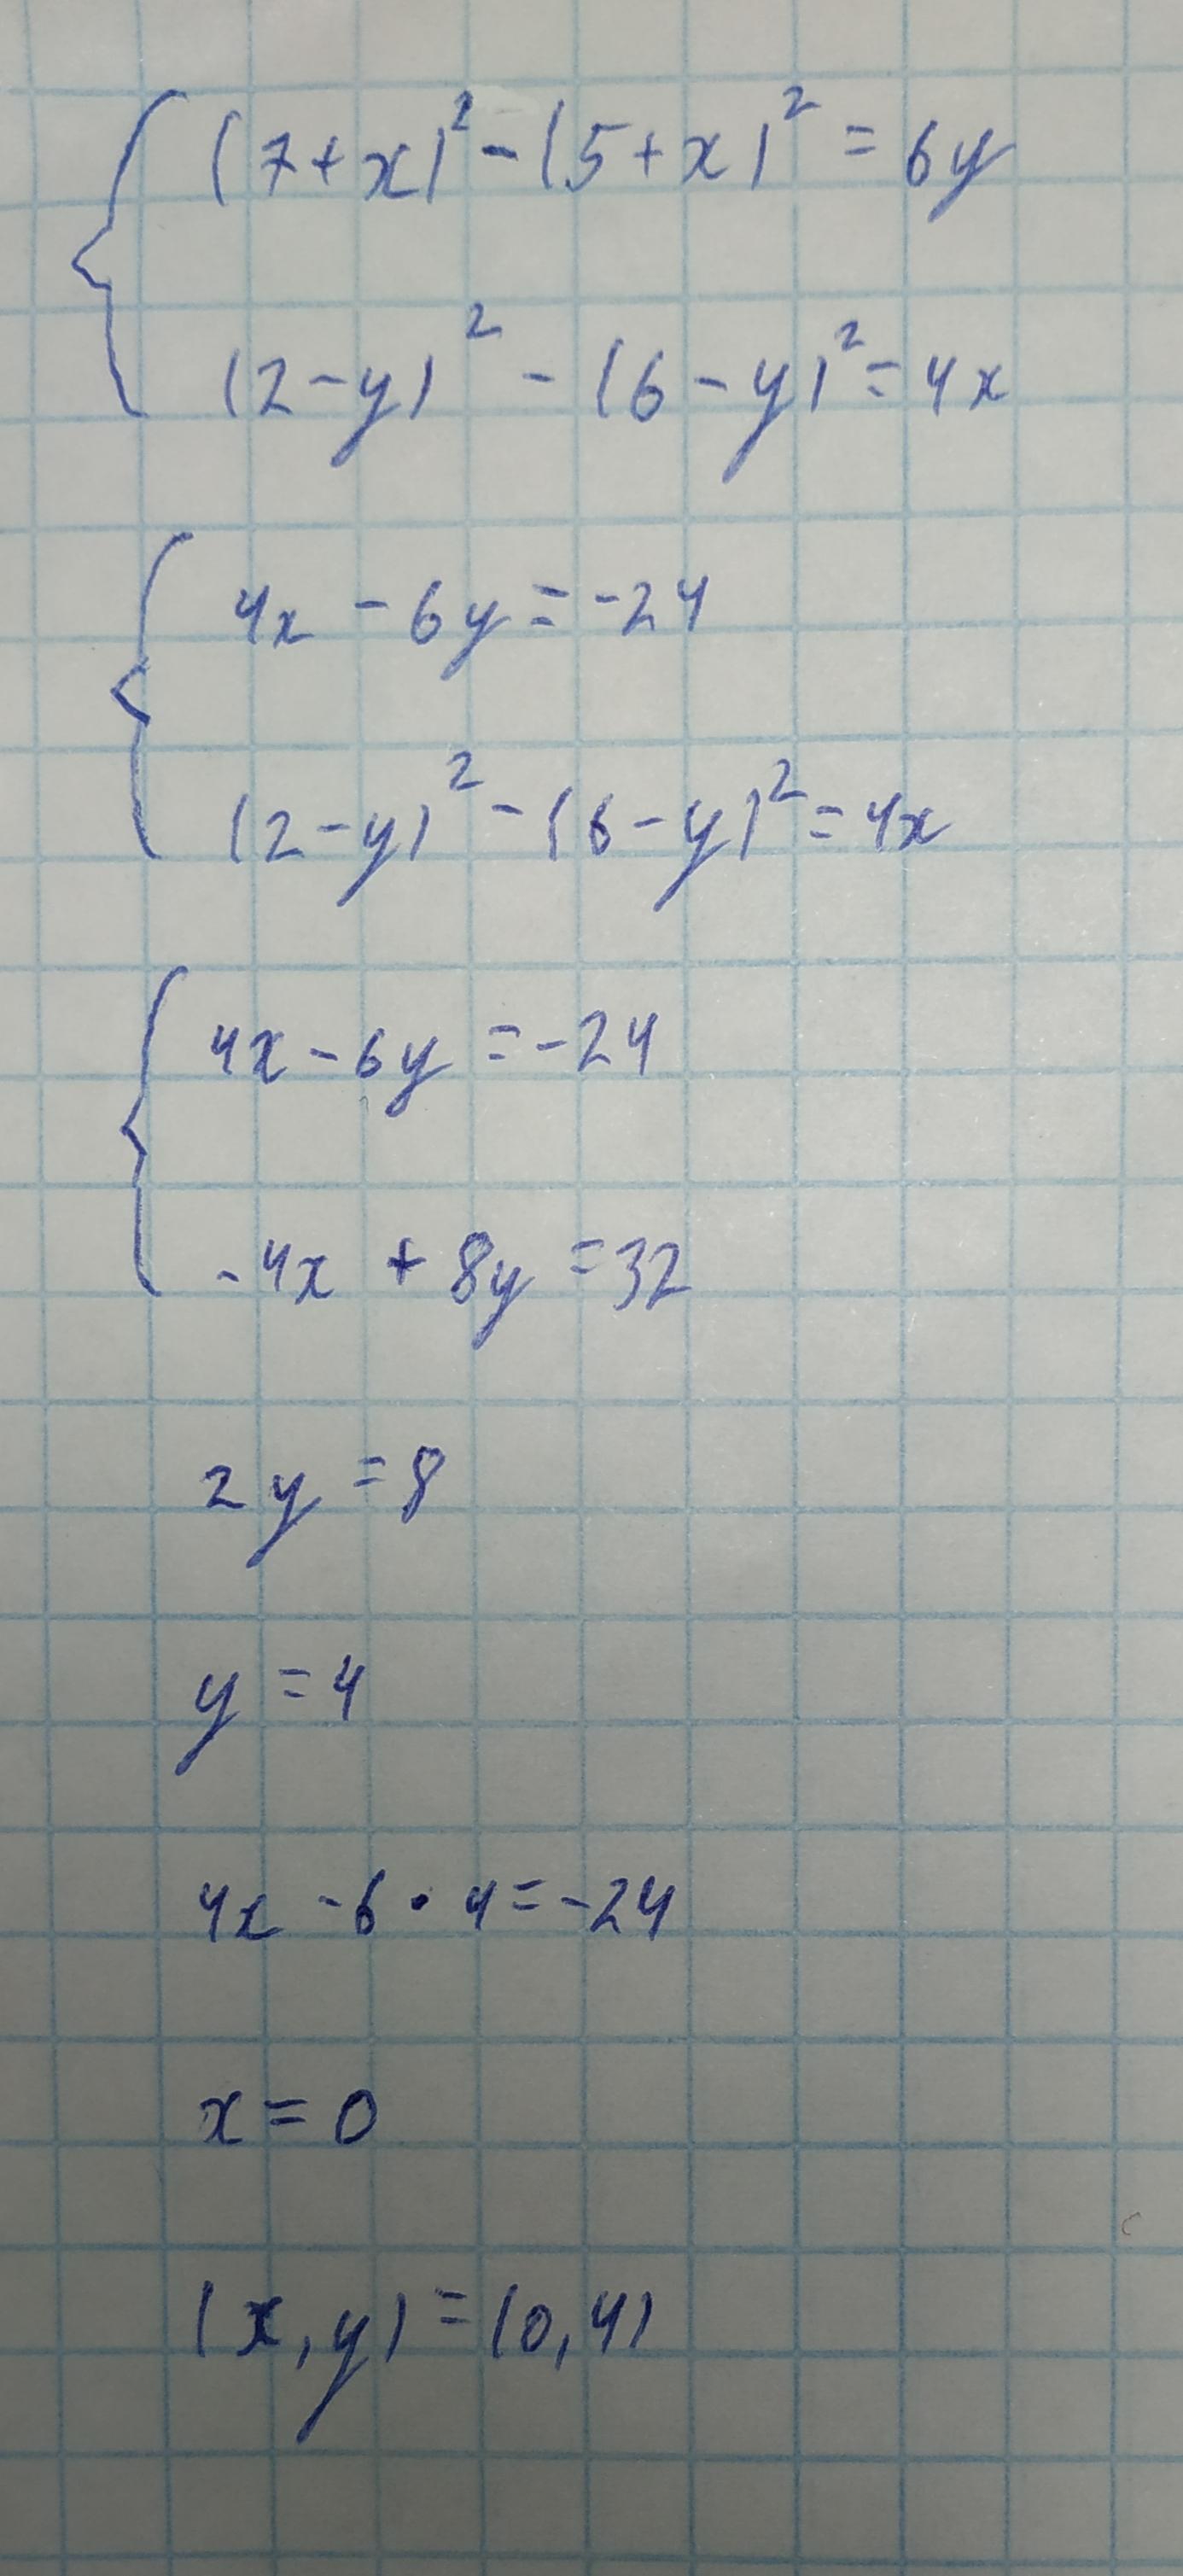 (7+x)² - (5+x)² = 6y
(2-y)² - (6-y)² = 4x
4x - 6y = -24
(2-y)² - (6-y)² = 4x
4x - 6y = -24
-4x + 8y = 32
2y = 8
y = 4
4x - 6 · 4 = -24
x = 0
(x, y) = (0, 4)